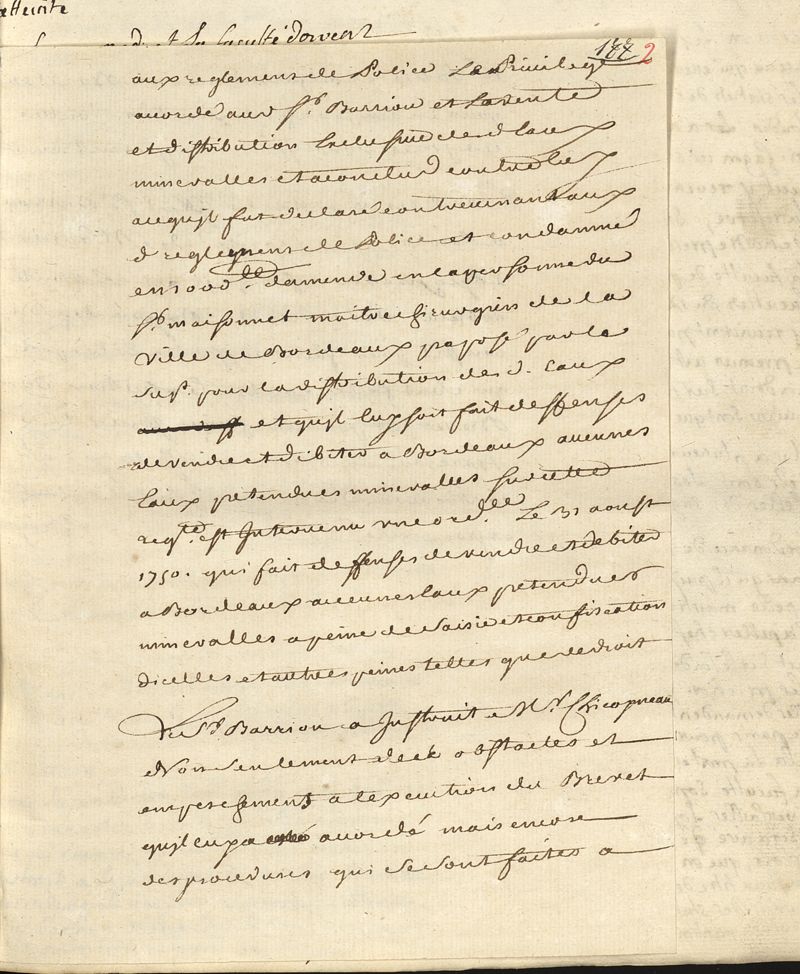 et la faculté d'ouvrir
188 2
aux reglements de Police Le Privilege
acordé aud Sr. Barriou et la vente
et distribution Exclusive desd Eaux
minevalles et a conclud contre lux
a cequ'jl fut declaré contrevenant aux
d reglements de Police et condamné
en 1000ll. damende en la personne du
Sr. maisonnet maitre chirurgien de la
ville de Bordeaux preposé par le
Sup. pour la distribution des d. Eaux
et qu'jl lux soit fait deffenses
de vendre et debiter a Bordeaux aucunes
Eaux pretendues minevalles sur cette
reqte. est Intervenu vne ord. Le 31 aoust
1750. qui fait deffenses de vendre et debiter
a Bordeaux aucunes Eaux pretendues
minevalles a peine de saisie et confiscation
dicelles et autres peines telles que de droit
Le Sr. Barriou a Instruit Mr. Chicoyneau
Non seulement des obstacles et
empeschements a lexecution du Brevet
qujl lux a esté acordé mais encore
des procedures qui se sont faites a